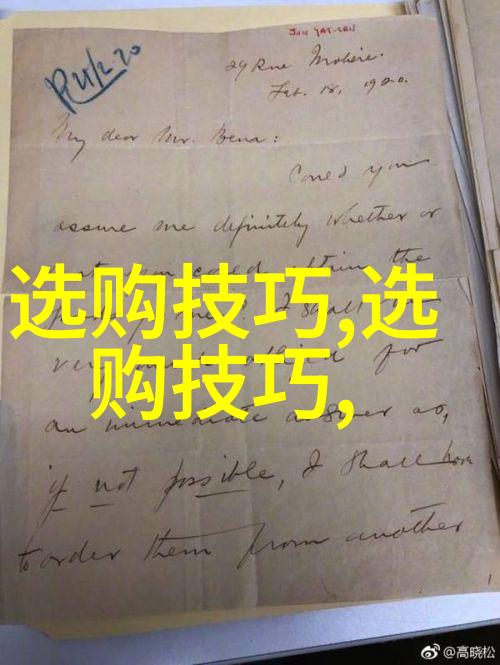 SUN YAT-SEN
29 Rue Molière.
Feb. 18, 1920.
My dear Mr. Bena:
Could you
assure me definitely whether or
not you could obtain the
选购技巧,选
购技巧,
very much obliged for
an immediate answer as,
if not possible, I shall have
to order them from another
@高晓松